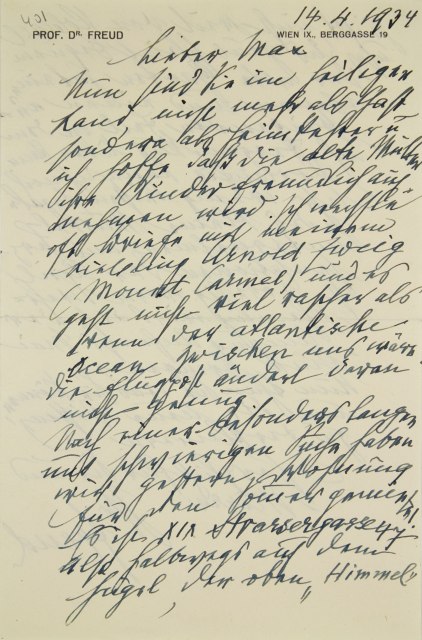 401
14.4.1934
PROF. DR. FREUD
WIEN IX., BERGGASSE 19
Lieber Max
Nun sind Sie im heiligen
Land nicht mehr als Gast
sondern als u
ich hoffe daß die alte Mutter
ihre Kinder freundlich auf
nehmen wird. Ich wechsle
oft Briefe mit meinem
Liebling Arnold Zweig
(Mount Carmel) und es
geht nicht viel rascher als
wenn der atlantische
Ocean zwischen uns wäre
die Flugpost ändert daran
nicht genug.
Nach einer besonders langen
und schwierigen Suche haben
wir gestern Wohnung
für den Sommer gemietet.
Es ist XIX Strassergasse 47.
also halbwegs auf dem
Hügel, der oben „Himmel"